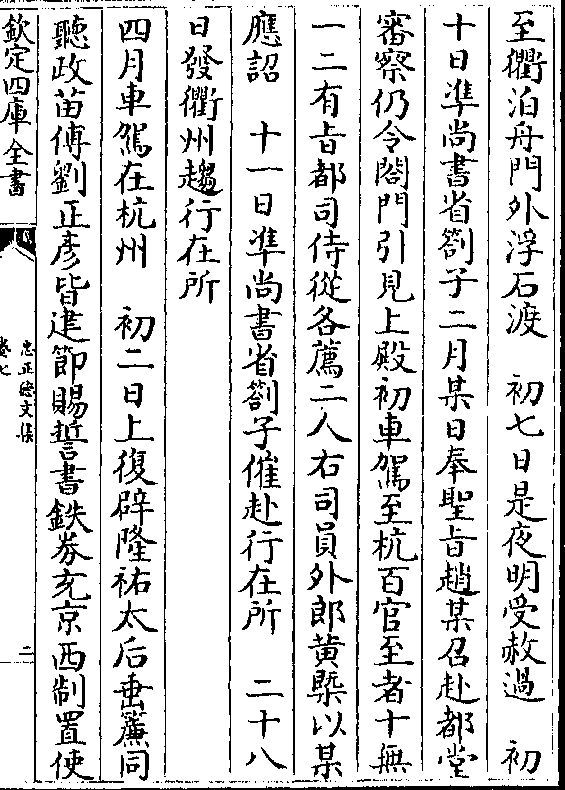 至衢泊舟門外浮石渡　初七日是夜明受赦過　初
十日準尚書省劄子二月某日奉聖旨趙某召赴都堂
審察仍令閤門引見上殿初車駕至杭百官至者十無
一二有旨都司侍從各薦二人右司員外郎黄槩以某
應詔　十一日準尚書省劄子催赴行在所　二十八
日發衢州趨行在所
四月車駕在杭州　初二日上復辟隆祐太后垂簾同
聽政苗傅劉正彦皆建節賜誓書鉄券充京西制置使
欽定四庫全書
忠正德文集
卷七
二